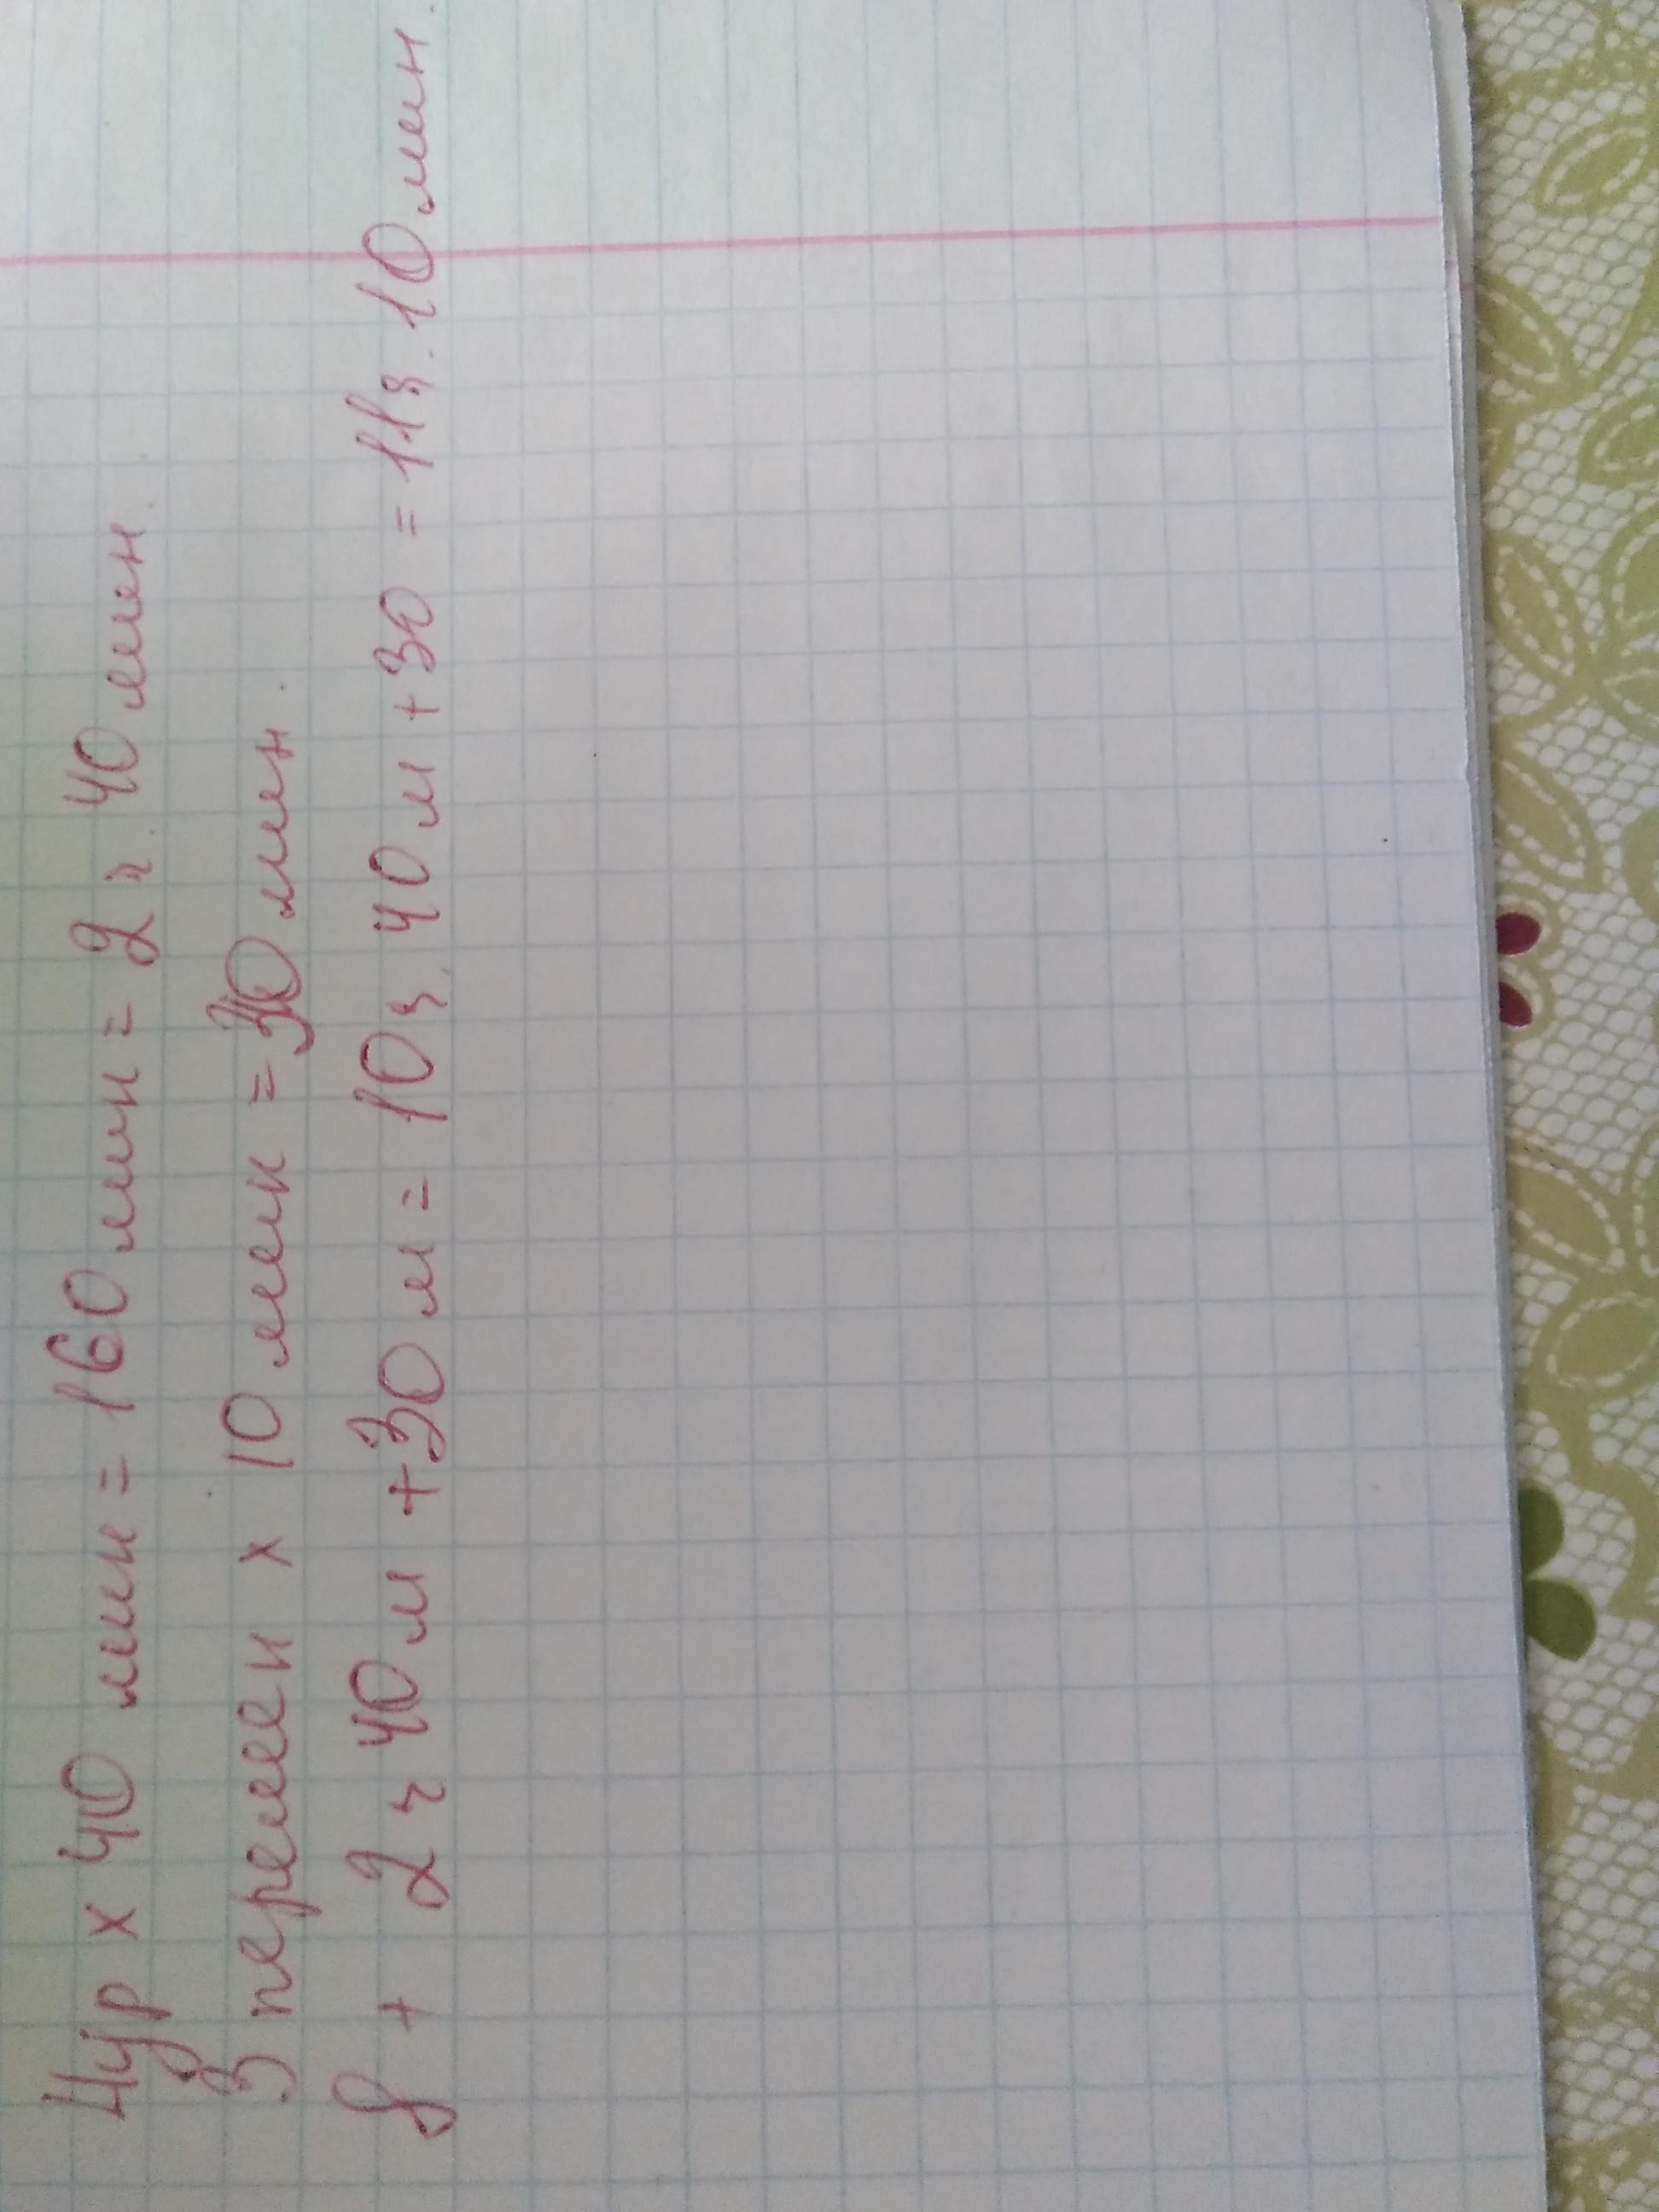 4ур х 40 мин = 160 мин = 2 ч. 40 мин.
3 перемен х 10 мин = 30 мин.
8 + 2 ч 40 м + 30 м = 10 ч. 40 м + 30 = 11 ч. 10 мин.